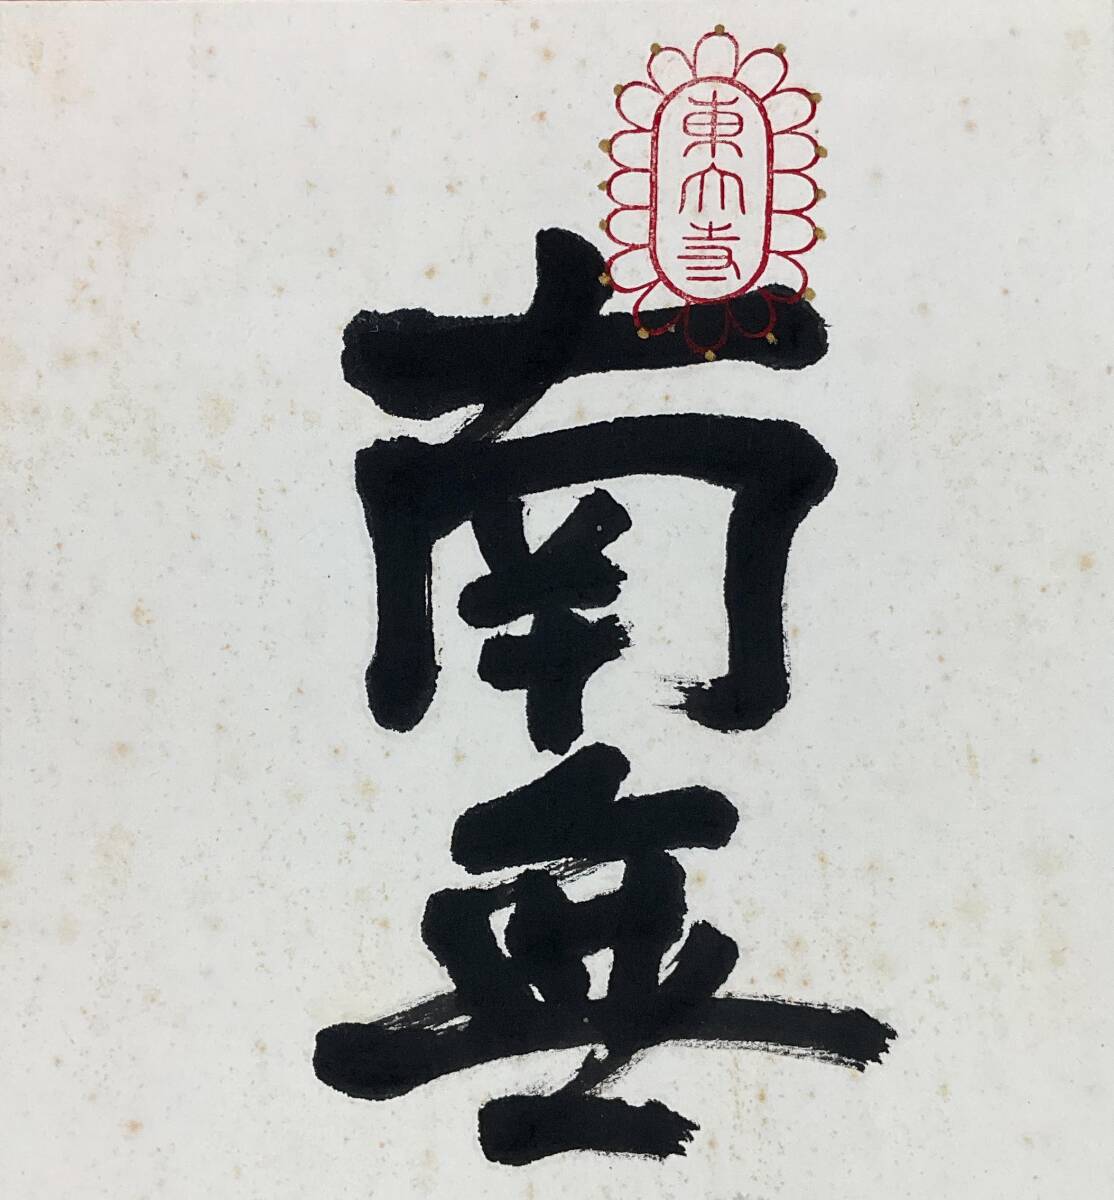 東大寺
南無